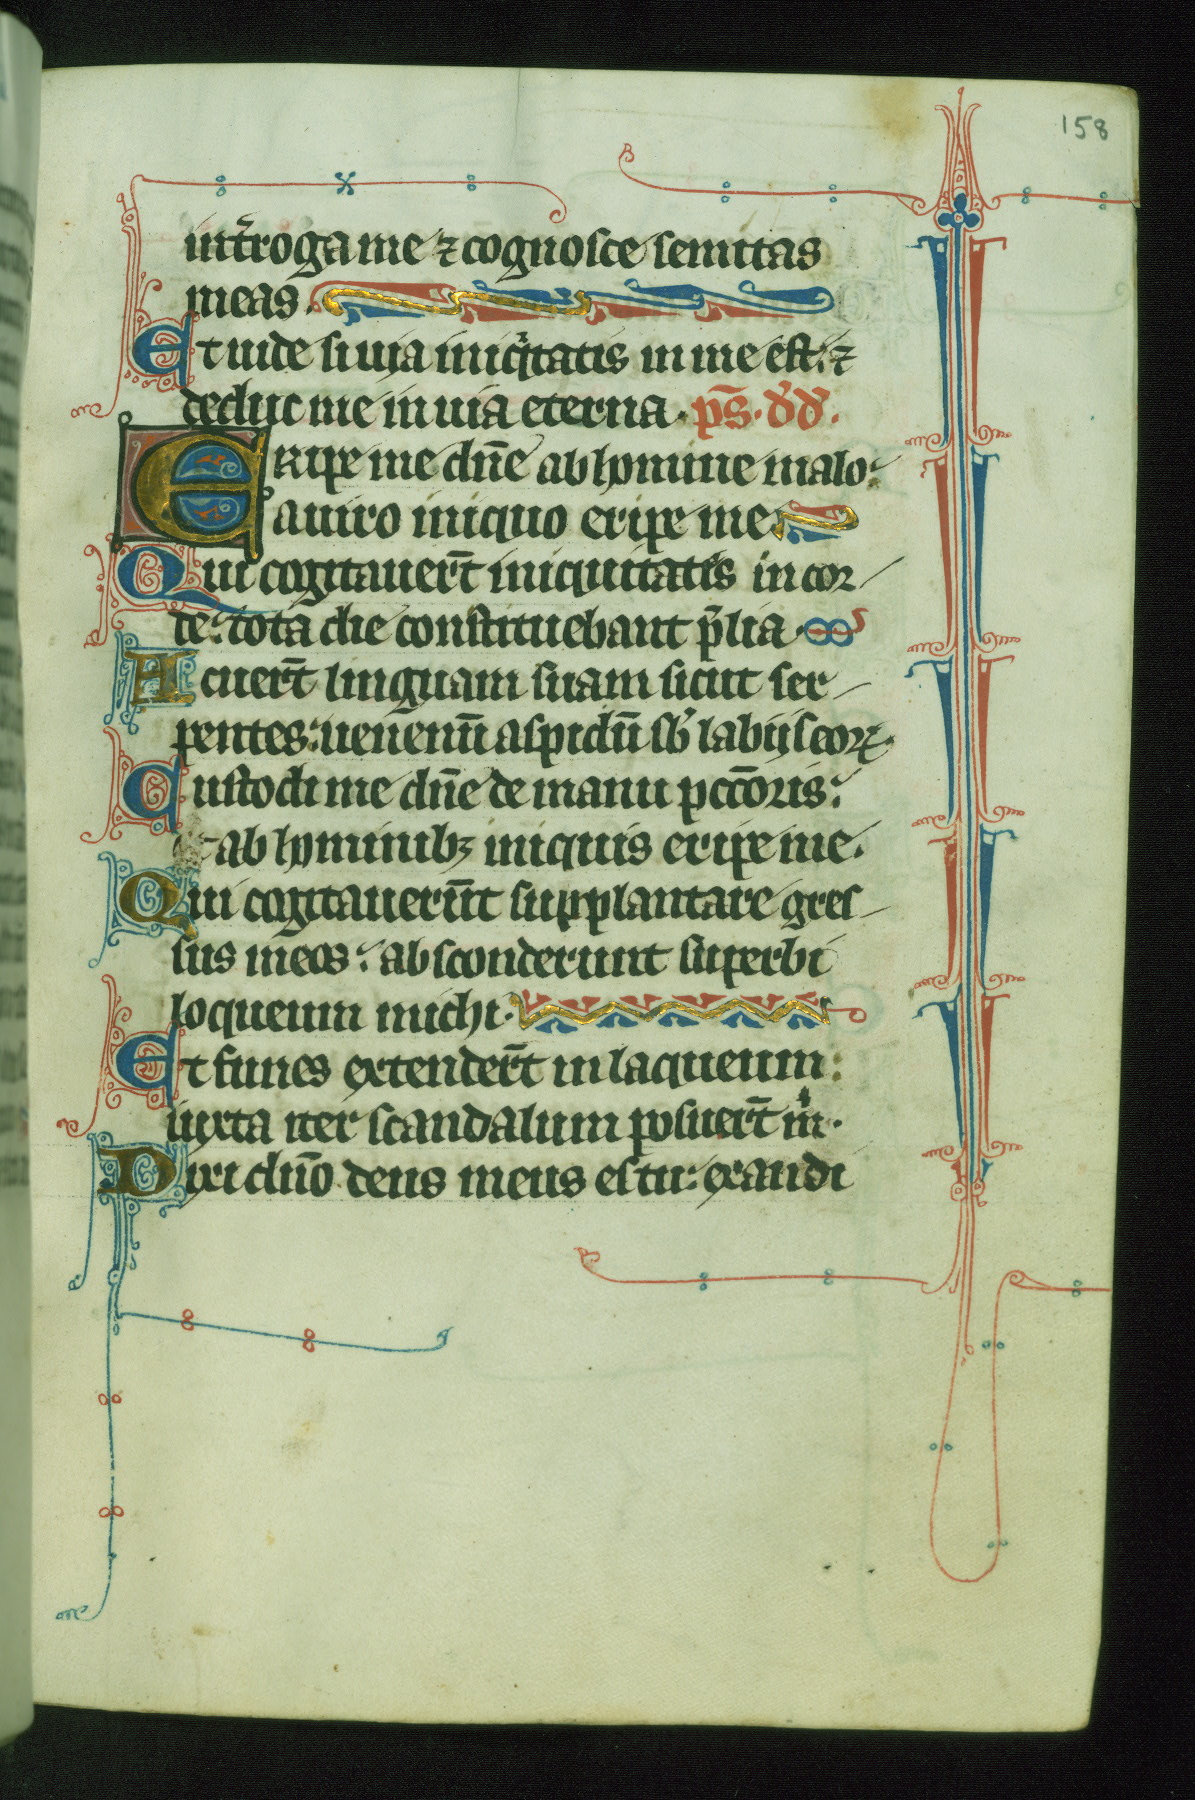 158
int̄roga me ⁊ cognosce semitas
meas.
Et uide si uia iniqͥtatis in me est: ⁊
deduc me in uia eterna. ps̄. dd̉.
Eripe me dn̄e ab homine malo:
a uiro iniquo eripe me
Qui cogitauer̄t iniquitates in cor
de: tota die constituebant p̄lia.
Acuer̄t linguam suam sicut ser
pentes: uenenū aspidū sb̉ labijs eoꝝ.
Custodi me dn̄e de manu pctōris:
ab hominibꝫ iniquis eripe me.
Qui cogitauerūt supplantare gres
sus meos: absconderunt superbi
loqueum michi.
Et funes extender̄t in laqueum:
iuxta iter scandalum posuer̄t m̍.
Dixi dn̄o deus meus es tu: exaudi